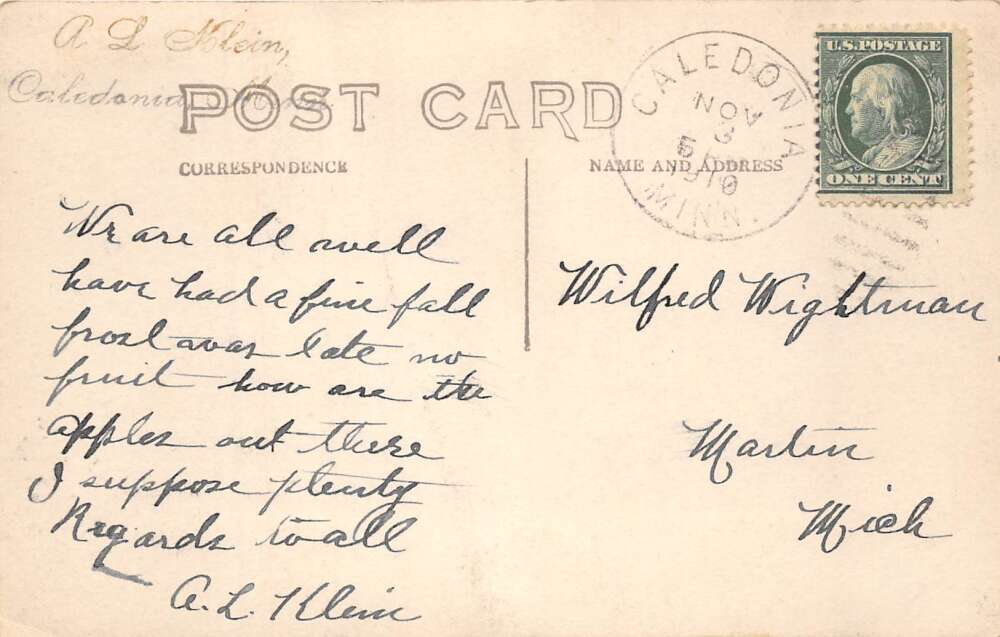 A L Klein,
Caledonia, Minn
POST CARD
CORRESPONDENCE
NAME AND ADDRESS
CALEDONIA
NOV
3
5 P
1910
MINN.
U.S. POSTAGE
ONE CENT
We are all well
have had a fine fall
frost was late no
fruit how are the
apples out there
I suppose plenty
Regards to all
A. L. Klein
Wilfred Wightman
Martin
Mich